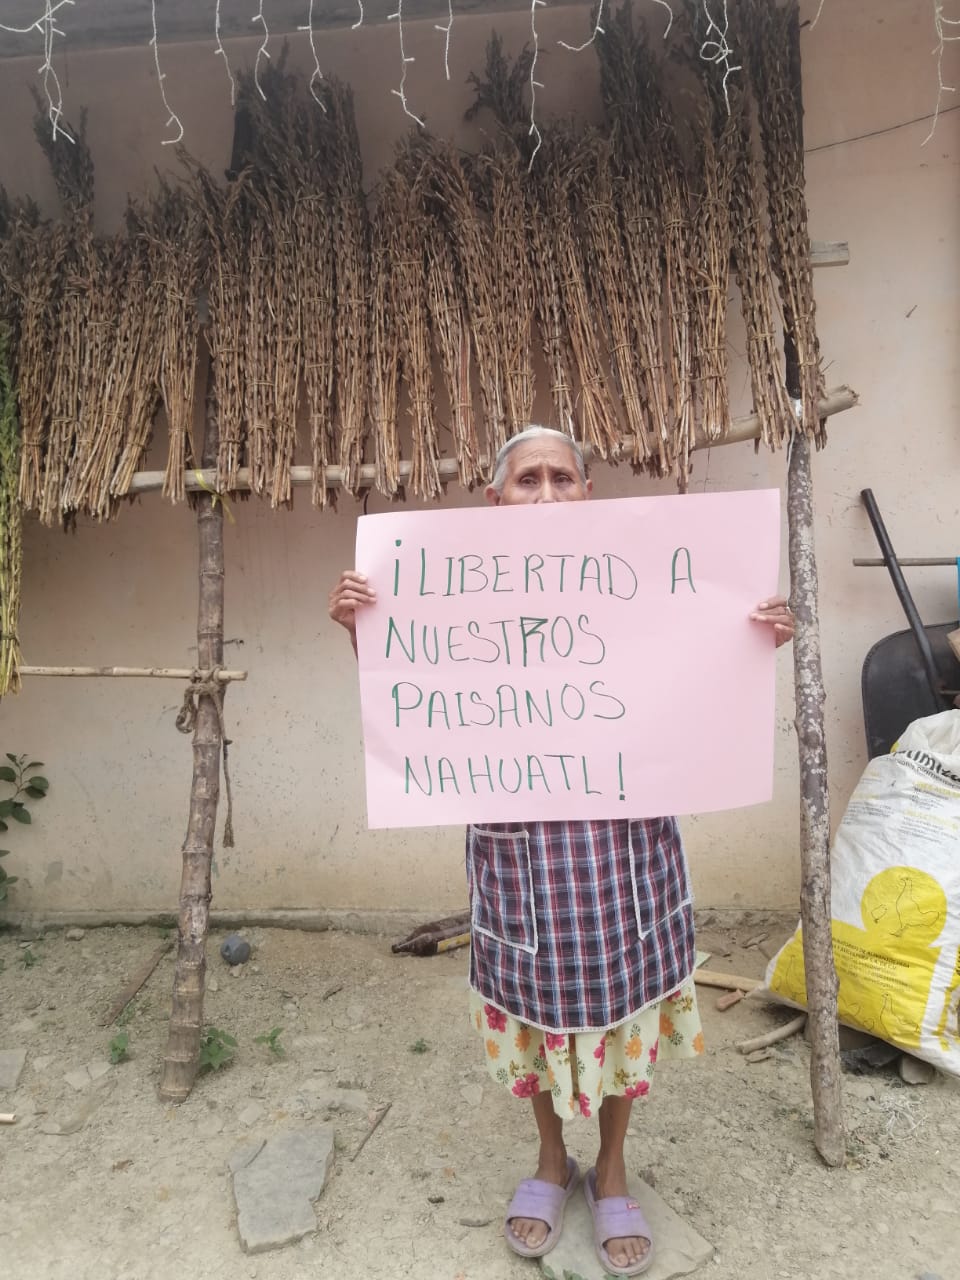 ¡LIBERTAD A
NUESTROS
PAISANOS
NAHUATL!